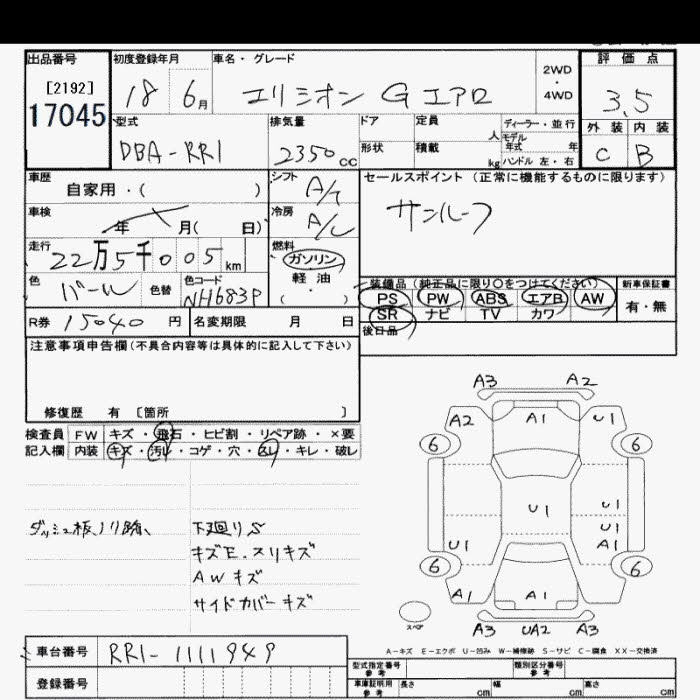 出品番号 初度登録年月 車名・グレード 2WD・4WD 評価点
[2192] 17045 18 6月 エリシオン G エアロ 3.5
型式 排気量 ドア 定員 人 ディーラー・並行 外装 内装
DBA-RR1 2350cc 形状 積載 kg モデル年式 年 ハンドル 左・右 C B
車歴 自家用・( ) シフト A/T セールスポイント (正常に機能するものに限ります)
車検 年 月( 日) 冷房 A/C サンルーフ
走行 22万5千005km 燃料 ガソリン 軽油・( )
色 パール 色替 色コード NH683P
装備品(純正品に限り○をつけてください) 新車保証書
PS PW ABS エアB AW 有・無
SR ナビ TV カワ
R券 15040円 名変期限 月 日 後日品
注意事項申告欄(不具合内容等は具体的に記入して下さい)
修復歴 有 〔箇所 〕
検査員 FW キズ・飛石・ヒビ割・リペア跡・×要
記入欄 内装 キズ・汚れ・コゲ・穴・スレ・キレ・破レ
A3 A2
A2 A1 U1
6 6
U1 U1
U1
U1 A1
6 6
A1 A1 A1
A3 UA2 A3
スペア
ダッシュ板ノリ跡、 下廻りS
キズE.スリキズ
AWキズ
サイドカバーキズ
A-キズ E-エクボ U-凹み W-補修跡 S-サビ C-腐食 XX-交換済
車台番号 RR1-1111949
登録番号
型式指定番号 参考 類別区分番号 参考
車庫証明用 参考 長さ cm 幅 cm 高さ cm